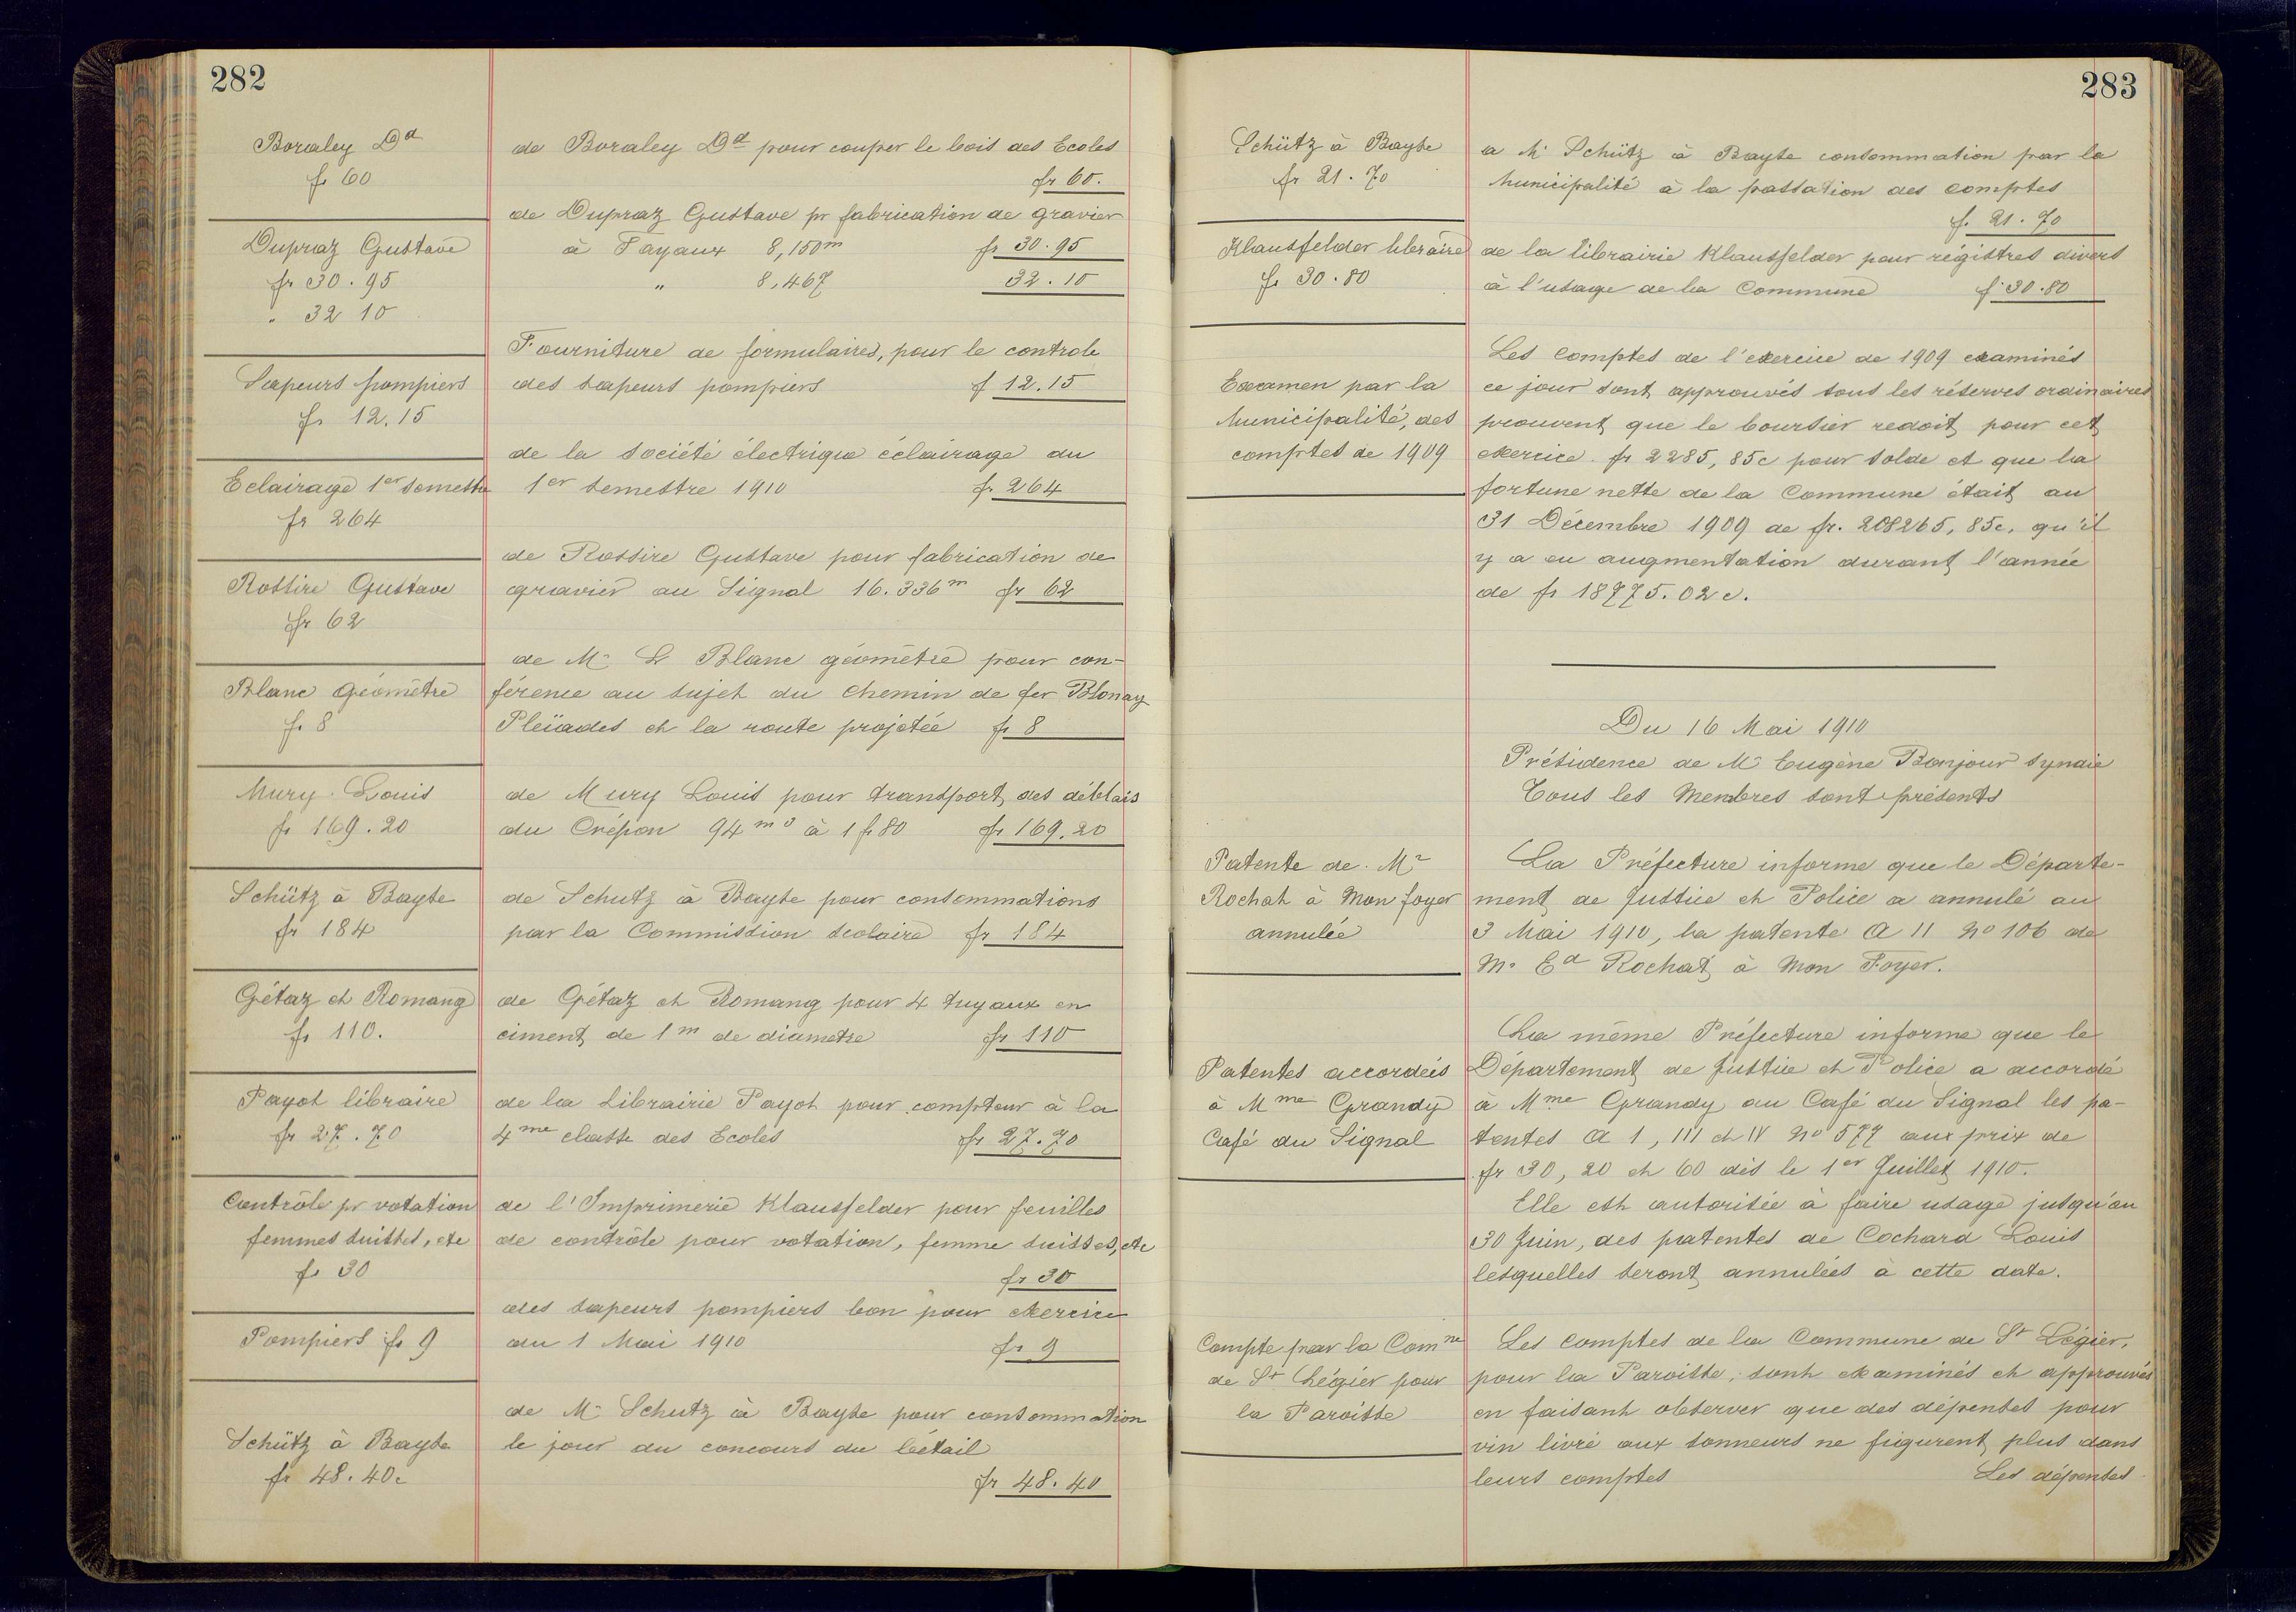 282
Boraley Dd
fr 60
de Boraley Dd pour couper le bois des Ecoles
fr 60.
Dupraz Gustave
fr 30.95
" 32 10
de Dupraz Gustave pr fabrication de gravier
à Fayaux 8,150m fr 30.95
" 8,467 32.10
Sapeurs pompiers
fr 12.15
Fourniture de formulaires, pour le controle
des sapeurs pompiers f 12.15
Eclairage 1er semestre
fr 264
de la société électrique éclairage du
1er semestre 1910 fr 264
Rossire Gustave
fr 62
de Rossire Gustave pour fabrication de
gravier au Signal 16.336m fr 62
Blanc géomètre
fr 8
de Mr L Blanc géomètre pour con-
férence au sujet du chemin de fer Blonay
Pleïades et la route projetée fr 8
Mury Louis
fr 169.20
de Mury Louis pour transport des déblais
du Crépon 94m3 à 1 fr 80 fr 169.20
Schütz à Bayse
fr 184
de Schutz à Bayse pour consommations
par la Commission scolaire fr 184
Gétaz et Romang
fr 110.
de Gétaz et Romang pour 4 tuyaux en
ciment de 1m de diametre fr 110
Payot libraire
fr 27.70
de la Librairie Payot pour compteur à la
4me classe des Ecoles fr 27.70
Contrôle pr votation
femmes suisses, etc
fr 30
de l'Imprimerie Klausfelder pour feuilles
de contrôle pour votation, femme suisses, etc
fr 30
Pompiers fr 9
des sapeurs pompiers bon pour exercice
du 1 Mai 1910 fr 9
Schütz à Bayse
fr 48.40c
de Mr Schutz à Bayse pour consommation
le jour du concours du bétail
fr 48.40
283
Schütz à Bayse
fr 21.70
a Mr Schütz à Bayse consommation par la
Municipalité à la passation des comptes
f. 21.70
Klausfelder libraire
fr 30.80
de la librairie Klausfelder pour régistres divers
à l'usage de la Commune f 30.80
Examen par la
Municipalité, des
comptes de 1909
Les comptes de l'exercice de 1909 examinés
ce jour sont approuvés sous les réserves ordinaires
prouvent que le boursier redoit pour cet
exercice fr 2285,85c pour solde et que la
fortune nette de la Commune était au
31 Décembre 1909 de fr. 208265,85c, qu'il
y a eu augmentation durant l'année
de fr 18775.02c.
Du 16 Mai 1910
Présidence de Mr Eugène Bonjour syndic
Tous les Membres sont présents
Patente de Mr
Rochat à Mon foyer
annulée
La Préfecture informe que le Départe-
ment de Justice et Police a annulé au
3 Mai 1910, la patente A II No 106 de
Mr Ed Rochat à Mon Foyer.
Patentes accordées
à Mme Grandy
Café du Signal
La même Préfecture informe que le
Département de Justice et Police a accordé
à Mme Grandy au Café du Signal les pa-
tentes A 1, III et IV No 577 aux prix de
fr 30, 20 et 60 dès le 1er Juillet 1910.
Elle est autorisée à faire usage jusqu'au
30 Juin, des patentes de Cochard Louis
lesquelles seront annulées à cette date.
Compte par la Comne
de St Légier pour
la Paroisse
Les comptes de la Commune de St Légier,
pour la Paroisse, sont examinés et approuvés
en faisant observer que des dépenses pour
vin livré aux sonneurs ne figurent plus dans
leurs comptes Les dépenses